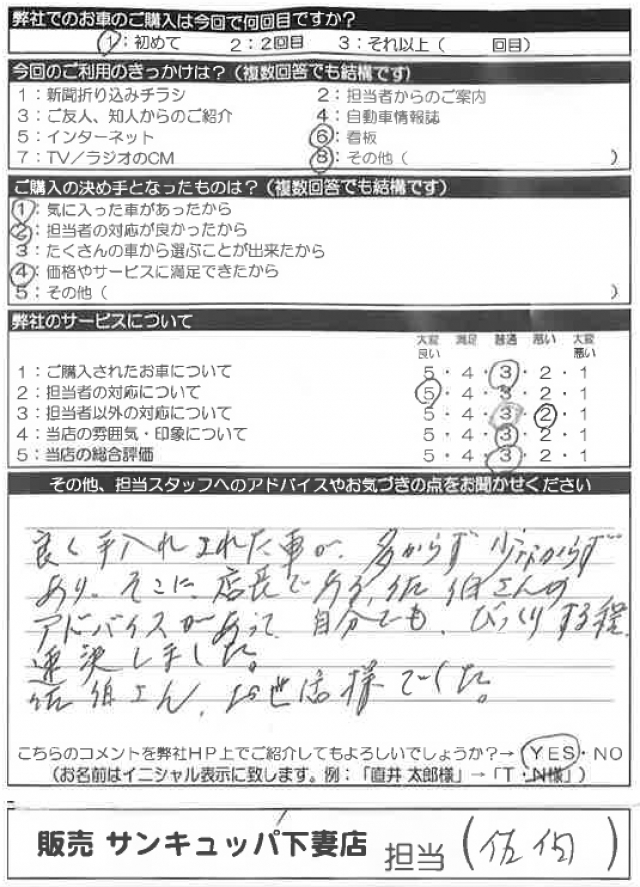 弊社でのお車のご購入は今回で何回目ですか？
1：初めて　2：2回目　3：それ以上（　　回目）
今回のご利用のきっかけは？（複数回答でも結構です）
1：新聞折り込みチラシ　2：担当者からのご案内
3：ご友人、知人からのご紹介　4：自動車情報誌
5：インターネット　6：看板
7：TV／ラジオのCM　8：その他（　　）
ご購入の決め手となったものは？（複数回答でも結構です）
1：気に入った車があったから
2：担当者の対応が良かったから
3：たくさんの車から選ぶことが出来たから
4：価格やサービスに満足できたから
5：その他（　　）
弊社のサービスについて
大変良い　満足　普通　悪い　大変悪い
1：ご購入されたお車について　5・4・3・2・1
2：担当者の対応について　5・4・3・2・1
3：担当者以外の対応について　5・4・3・2・1
4：当店の雰囲気・印象について　5・4・3・2・1
5：当店の総合評価　5・4・3・2・1
その他、担当スタッフへのアドバイスやお気づきの点をお聞かせください
良く手入れされた車が、多からず少なからず
あり、そこに、店長である、佐伯さんの
アドバイスがあって、自分でも、びっくりする程、
速決しました。
佐伯さん、お世話様でした。
こちらのコメントを弊社HP上でご紹介してもよろしいでしょうか？→ YES・NO
（お名前はイニシャル表示に致します。例：「直井 太郎様」→「T・N様」）
販売 サンキュッパ下妻店　担当（佐伯）